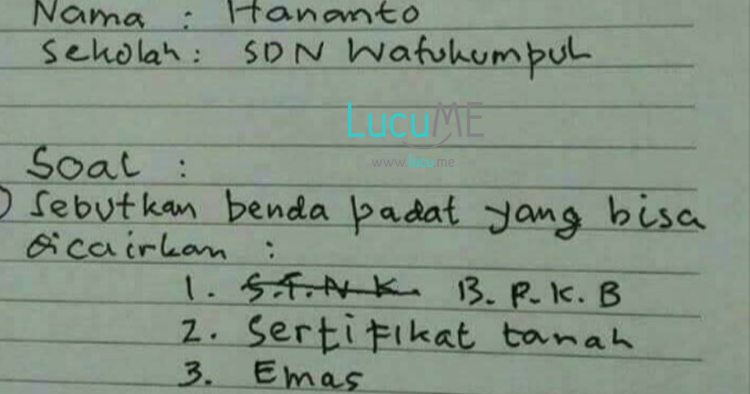 Nama : Hananto
Sekolah : SDN Watukumpul
LucuME
www.lucume
Soal :
Sebutkan benda padat yang bisa
dicairkan :
1. S.T.N.K. B.P.K.B
2. Sertifikat tanah
3. Emas